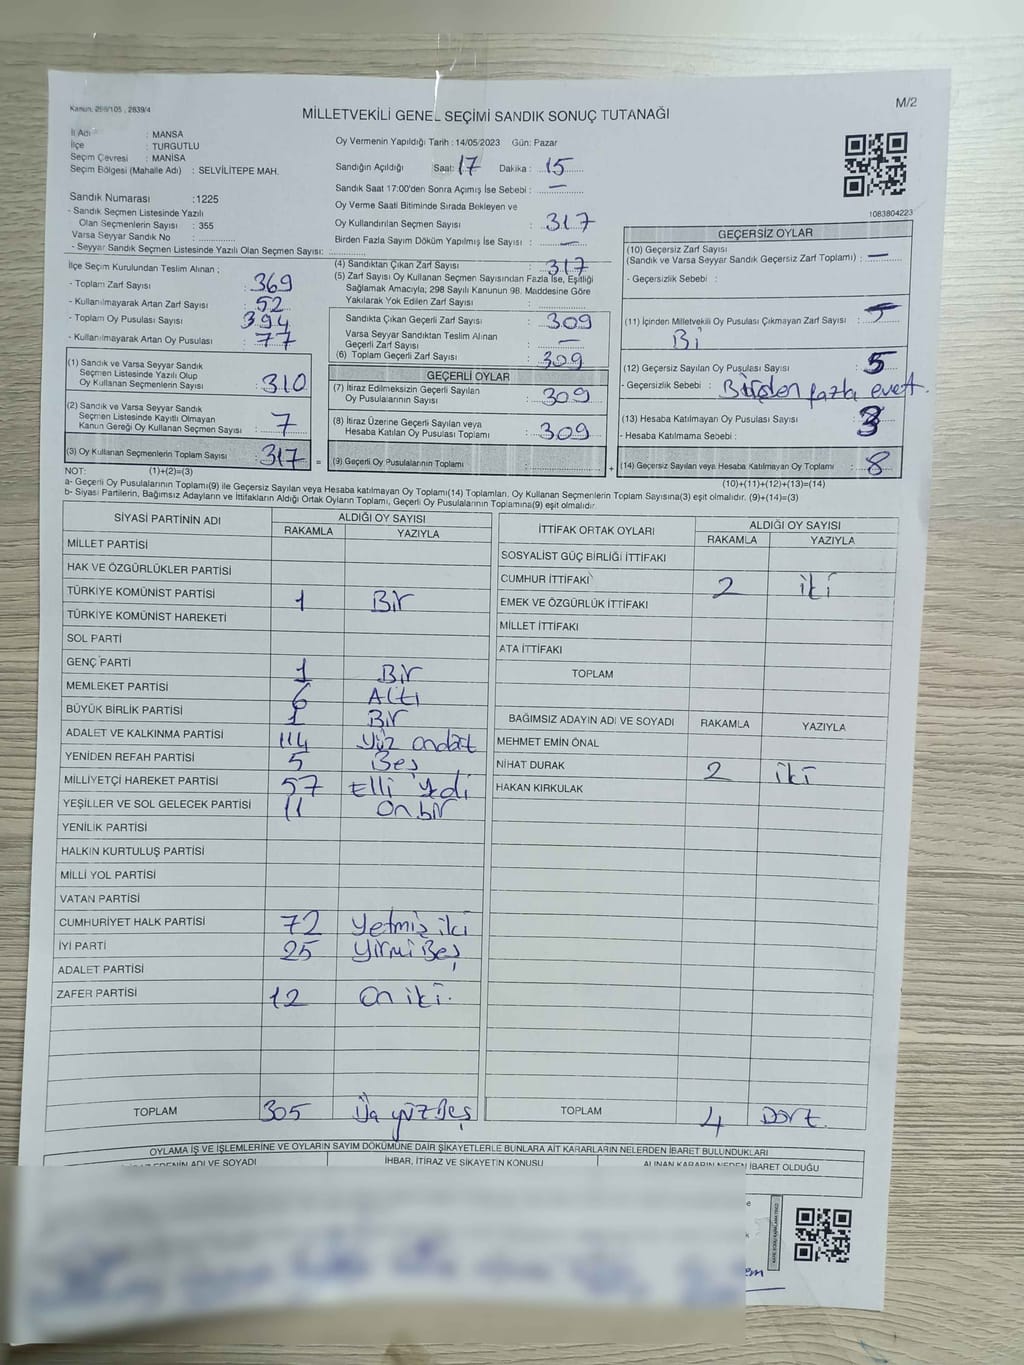 Kanun: 298/105 , 2839/4
M/2
MİLLETVEKİLİ GENEL SEÇİMİ SANDIK SONUÇ TUTANAĞI
İl Adı : MANİSA
İlçe : TURGUTLU
Seçim Çevresi : MANİSA
Seçim Bölgesi (Mahalle Adı) : SELVİLİTEPE MAH.
Sandık Numarası :1225
- Sandık Seçmen Listesinde Yazılı
Olan Seçmenlerin Sayısı : 355
Varsa Seyyar Sandık No :
- Seyyar Sandık Seçmen Listesinde Yazılı Olan Seçmen Sayısı:
Oy Vermenin Yapıldığı Tarih : 14/05/2023 Gün: Pazar
Sandığın Açıldığı Saat: 17 Dakika : 15
Sandık Saat 17:00'den Sonra Açımış İse Sebebi : —
Oy Verme Saati Bitiminde Sırada Bekleyen ve
Oy Kullandırılan Seçmen Sayısı : 317
Birden Fazla Sayım Döküm Yapılmış İse Sayısı : —
1083804223
İlçe Seçim Kurulundan Teslim Alınan ;
- Toplam Zarf Sayısı : 369
- Kullanılmayarak Artan Zarf Sayısı : 52
- Toplam Oy Pusulası Sayısı : 394
- Kullanılmayarak Artan Oy Pusulası : 77
(1) Sandık ve Varsa Seyyar Sandık
Seçmen Listesinde Yazılı Olup
Oy Kullanan Seçmenlerin Sayısı : 310
(2) Sandık ve Varsa Seyyar Sandık
Seçmen Listesinde Kayıtlı Olmayan
Kanun Gereği Oy Kullanan Seçmen Sayısı : 7
(3) Oy Kullanan Seçmenlerin Toplam Sayısı : 317 =
(4) Sandıktan Çıkan Zarf Sayısı : 317
(5) Zarf Sayısı Oy Kullanan Seçmen Sayısından Fazla İse, Eşitliği
Sağlamak Amacıyla; 298 Sayılı Kanunun 98. Maddesine Göre
Yakılarak Yok Edilen Zarf Sayısı :
Sandıkta Çıkan Geçerli Zarf Sayısı : 309
Varsa Seyyar Sandıktan Teslim Alınan
Geçerli Zarf Sayısı : —
(6) Toplam Geçerli Zarf Sayısı : 309
GEÇERLİ OYLAR
(7) İtiraz Edilmeksizin Geçerli Sayılan
Oy Pusulalarının Sayısı : 309
(8) İtiraz Üzerine Geçerli Sayılan veya
Hesaba Katılan Oy Pusulası Toplamı : 309
(9) Geçerli Oy Pusulalarının Toplamı : +
GEÇERSİZ OYLAR
(10) Geçersiz Zarf Sayısı
(Sandık ve Varsa Seyyar Sandık Geçersiz Zarf Toplamı) : —
- Geçersizlik Sebebi :
(11) İçinden Milletvekili Oy Pusulası Çıkmayan Zarf Sayısı :
Bi
(12) Geçersiz Sayılan Oy Pusulası Sayısı : 5
- Geçersizlik Sebebi : Birden fazla evet.
(13) Hesaba Katılmayan Oy Pusulası Sayısı : 3
- Hesaba Katılmama Sebebi :
(14) Geçersiz Sayılan veya Hesaba Katılmayan Oy Toplamı : 8
NOT: (1)+(2)=(3)
(10)+(11)+(12)+(13)=(14)
a- Geçerli Oy Pusulalarının Toplamı(9) ile Geçersiz Sayılan veya Hesaba katılmayan Oy Toplamı(14) Toplamları, Oy Kullanan Seçmenlerin Toplam Sayısına(3) eşit olmalıdır. (9)+(14)=(3)
b- Siyasi Partilerin, Bağımsız Adayların ve İttifakların Aldığı Ortak Oyların Toplamı, Geçerli Oy Pusulalarının Toplamına(9) eşit olmalıdır.
SİYASİ PARTİNİN ADI ALDIĞI OY SAYISI
RAKAMLA YAZIYLA
MİLLET PARTİSİ
HAK VE ÖZGÜRLÜKLER PARTİSİ
TÜRKİYE KOMÜNİST PARTİSİ 1 Bir
TÜRKİYE KOMÜNİST HAREKETİ
SOL PARTİ
GENÇ PARTİ 1 Bir
MEMLEKET PARTİSİ 6 Altı
BÜYÜK BİRLİK PARTİSİ 1 Bir
ADALET VE KALKINMA PARTİSİ 114 Yüz ondört
YENİDEN REFAH PARTİSİ 5 Beş
MİLLİYETÇİ HAREKET PARTİSİ 57 Elli yedi
YEŞİLLER VE SOL GELECEK PARTİSİ 11 On bir
YENİLİK PARTİSİ
HALKIN KURTULUŞ PARTİSİ
MİLLİ YOL PARTİSİ
VATAN PARTİSİ
CUMHURİYET HALK PARTİSİ 72 Yetmiş iki
İYİ PARTİ 25 Yirmi Beş
ADALET PARTİSİ
ZAFER PARTİSİ 12 On iki.
TOPLAM 305 Üç yüz Beş
İTTİFAK ORTAK OYLARI ALDIĞI OY SAYISI
RAKAMLA YAZIYLA
SOSYALİST GÜÇ BİRLİĞİ İTTİFAKI
CUMHUR İTTİFAKI 2 iki
EMEK VE ÖZGÜRLÜK İTTİFAKI
MİLLET İTTİFAKI
ATA İTTİFAKI
TOPLAM
BAĞIMSIZ ADAYIN ADI VE SOYADI RAKAMLA YAZIYLA
MEHMET EMİN ÖNAL
NİHAT DURAK 2 iki
HAKAN KIRKULAK
TOPLAM 4 Dört.
OYLAMA İŞ VE İŞLEMLERİNE VE OYLARIN SAYIM DÖKÜMÜNE DAİR ŞİKAYETLERLE BUNLARA AİT KARARLARIN NELERDEN İBARET BULUNDUKLARI
EDENİN ADI VE SOYADI İHBAR, İTİRAZ VE ŞİKAYETİN KONUSU ALINAN KARARIN NEDEN İBARET OLDUĞU